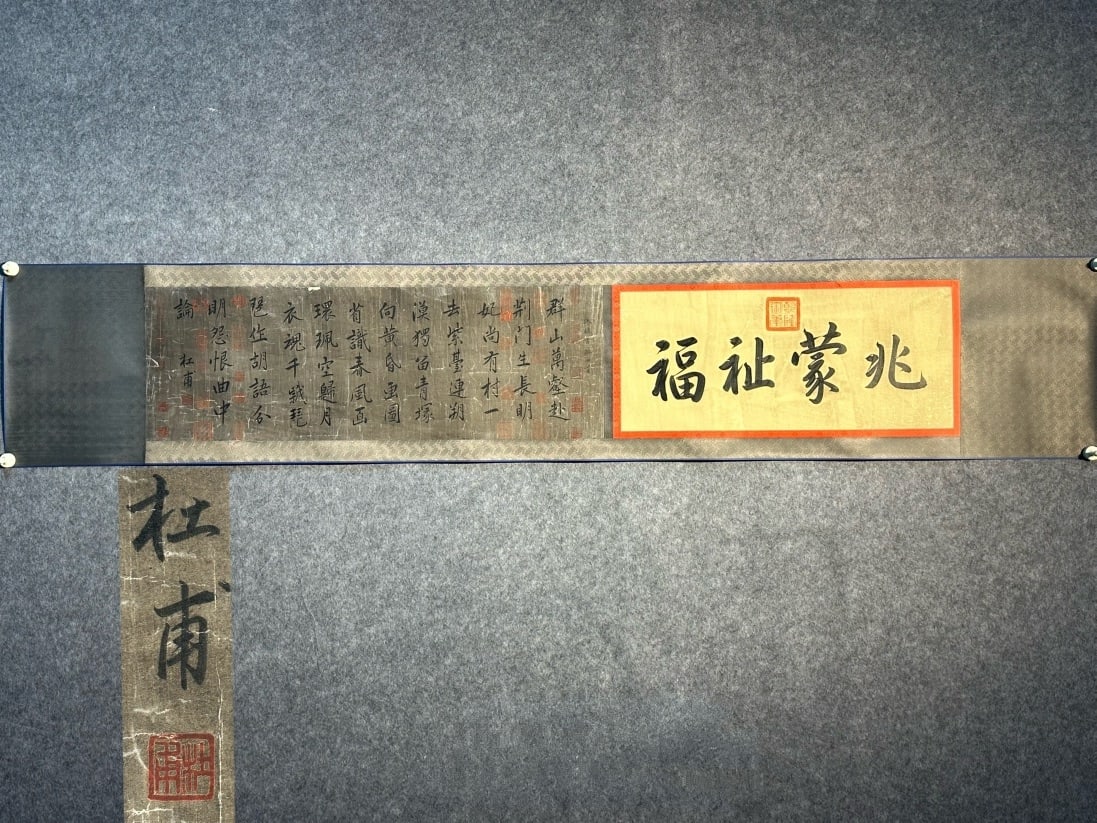 兆蒙祉福
群山萬壑赴
荆門生長明
妃尚有村一
去紫臺連朔
漠獨留青塚
向黄昏畫圖
省識春風面
環珮空歸月
夜魂千載琵
琶作胡語分
明怨恨曲中
論
杜甫
杜甫
杜甫